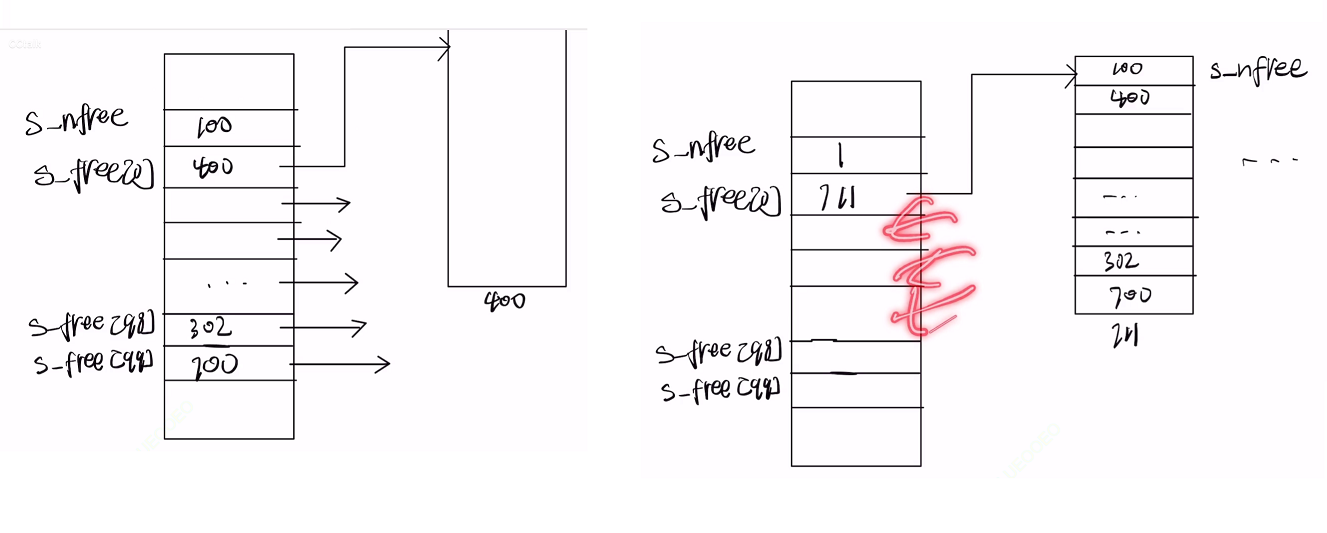 s_nfree 100
s_free[0] 400
...
s_free[98] 302
s_free[99] 700
400
s_nfree 1
s_free[0] 711
s_free[98]
s_free[99]
100 s_nfree
400
---
...
...
302
700
211